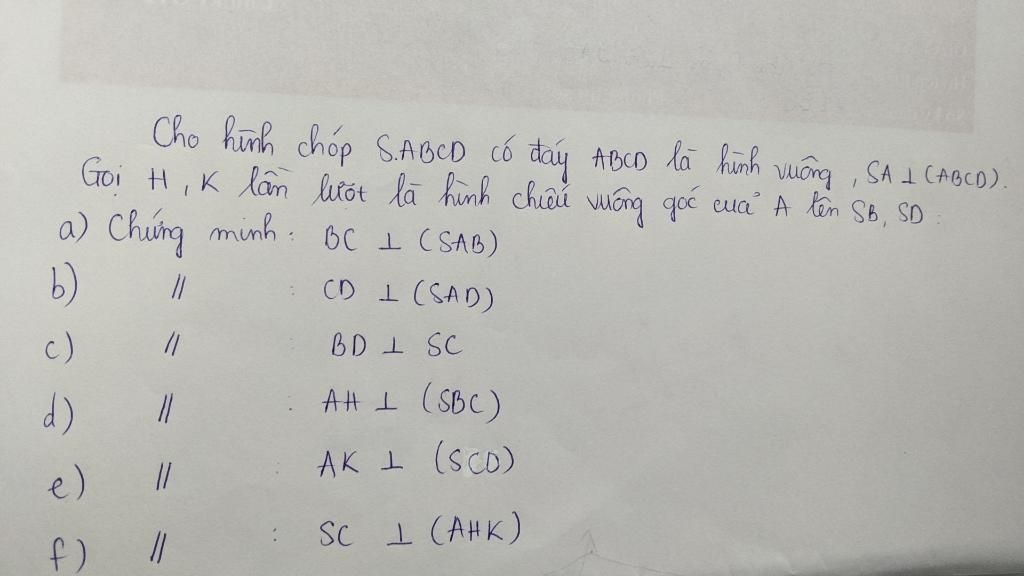 Cho hình chóp S.ABCD có đáy ABCD là hình vuông, SA ⊥ (ABCD).
Gọi H, K lần lượt là hình chiếu vuông góc của A lên SB, SD.
a) Chứng minh : BC ⊥ (SAB)
b) // : CD ⊥ (SAD)
c) // : BD ⊥ SC
d) // : AH ⊥ (SBC)
e) // : AK ⊥ (SCD)
f) // : SC ⊥ (AHK)